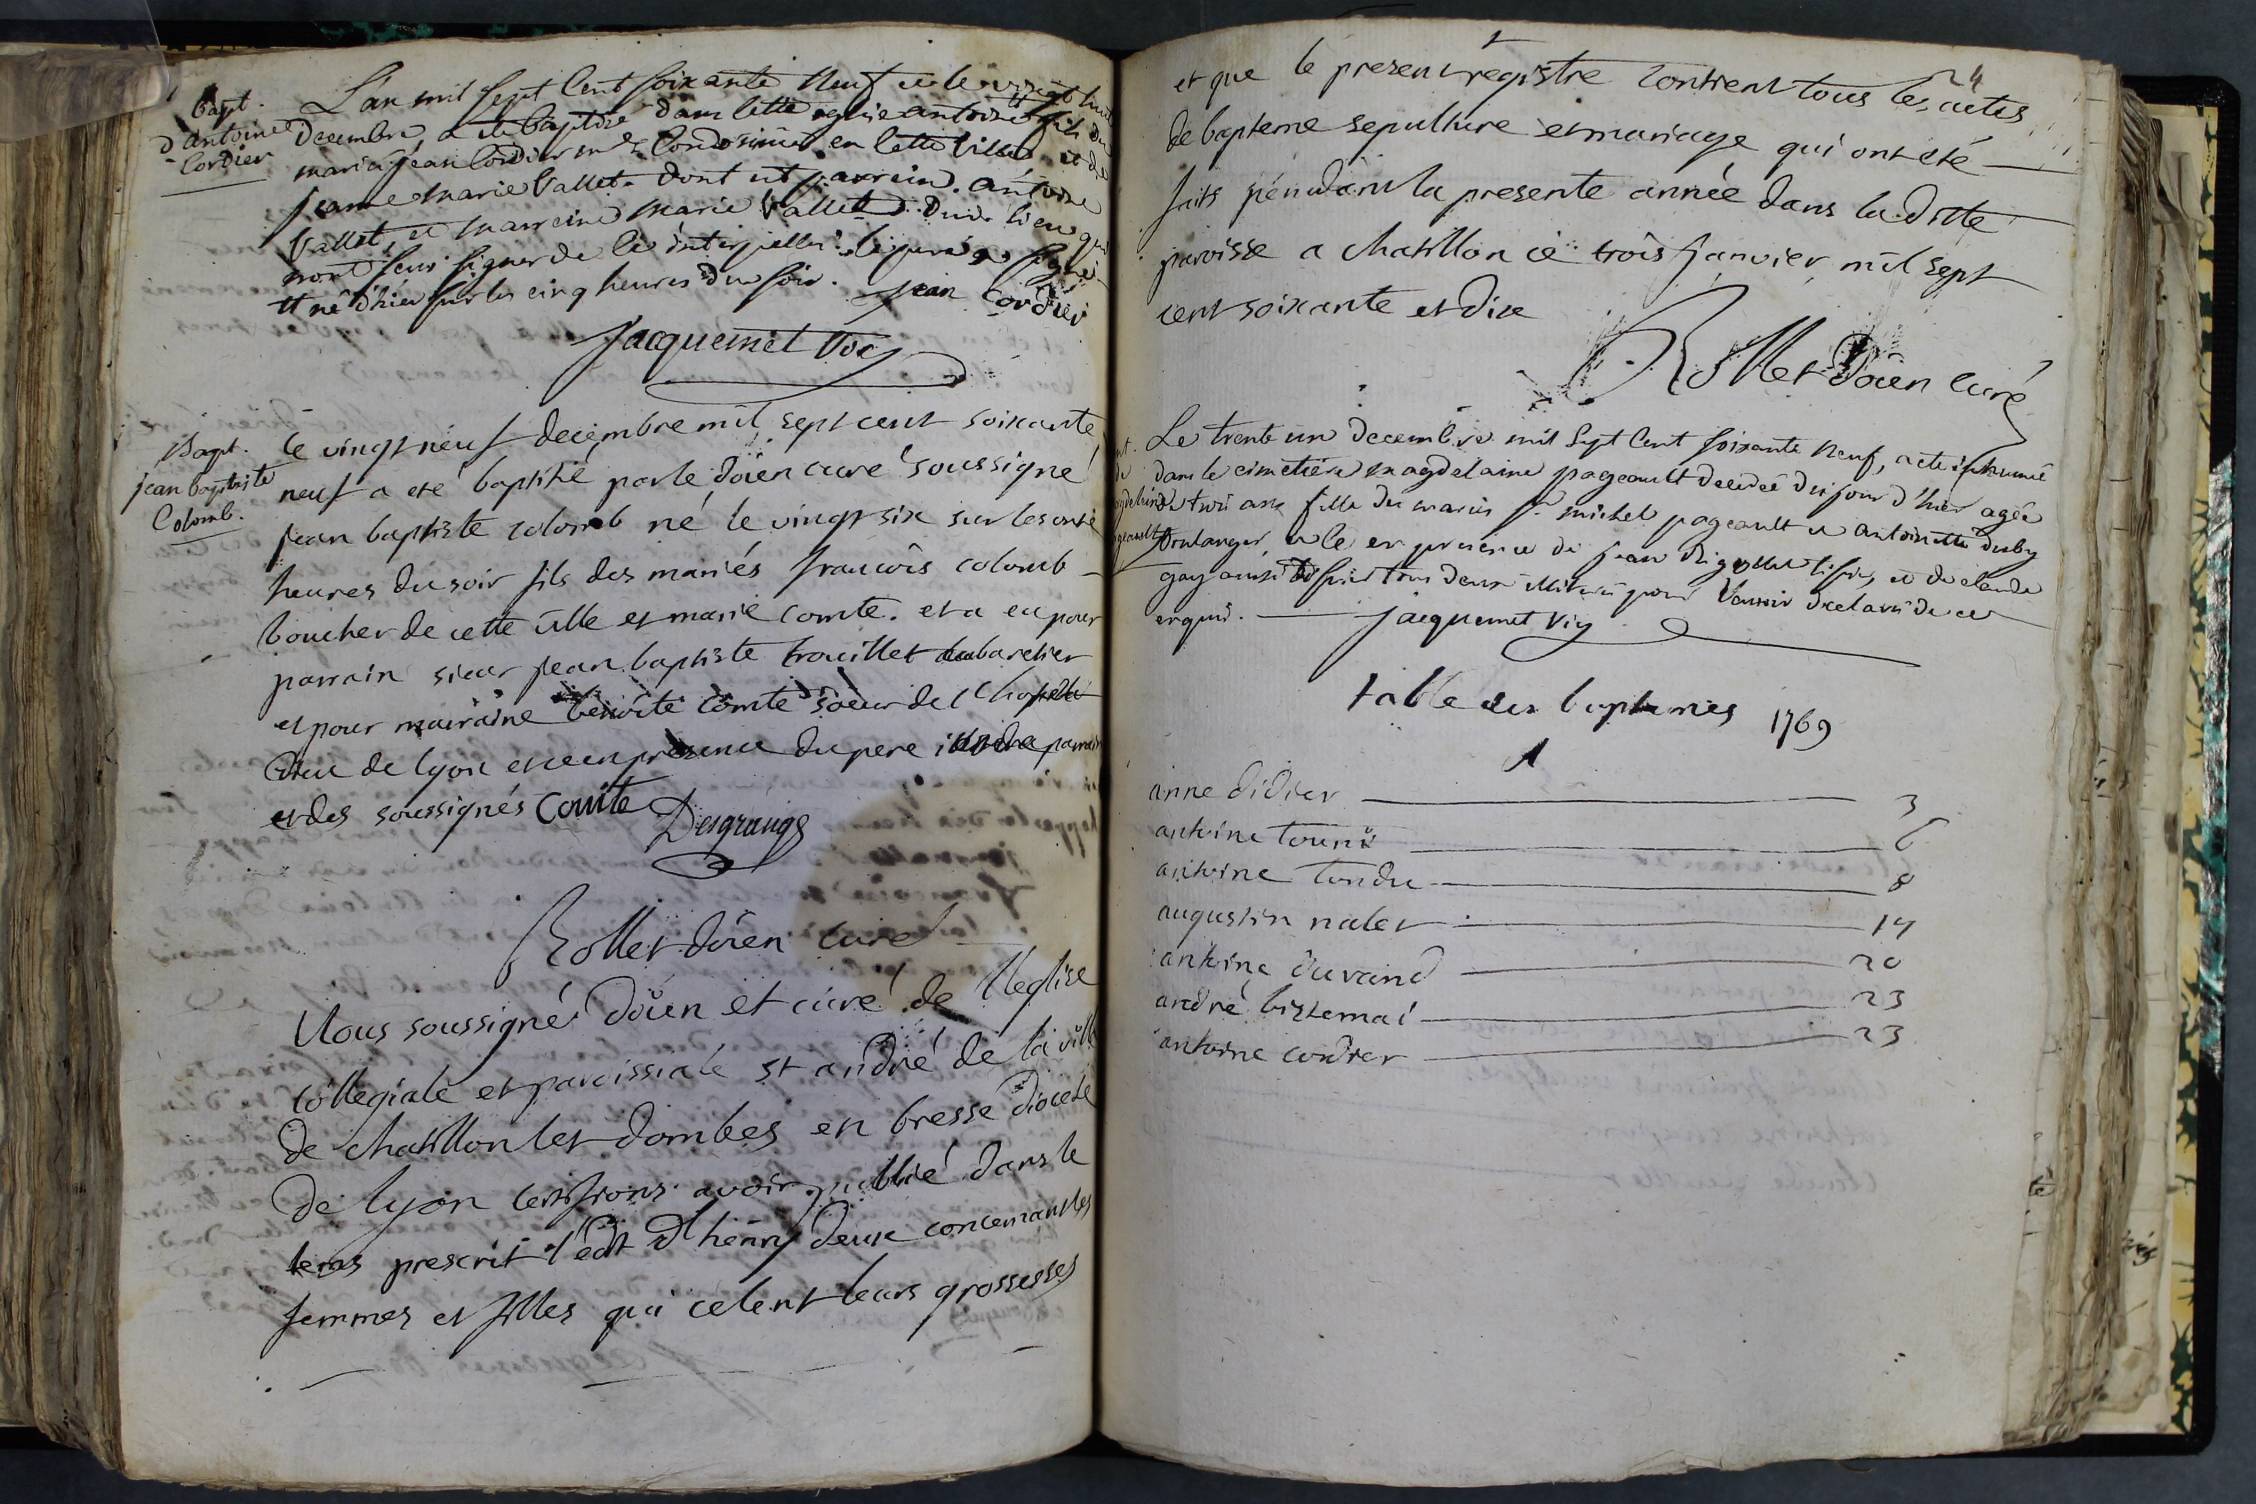 Bapt.
d'antoine
Cordier
L'an mil sept cent soixante neuf et le vingt huit
Decembre, a été baptisé dans cette eglise antoine fils du
marié jean Cordier md Cordonnier en cette ville et de
jeanne marie Vallet. dont est parrein antoine
Vallet, et marreine marie Vallet dud. lieu qui
n'ont seu signer de ce interpellés. le pere a signé
né d'hier sur les cinq heures du soir. jean Cordier
Jacquemet vic
Bapt.
jean baptiste
Colomb.
le vingt neuf decembre mil sept cent soixante
neuf a eté baptisé par le doïen curé soussigné
jean baptiste colomb né le vingt six sur les onze
heures du soir fils des mariés francois colomb
boucher de cette ville et marie comte. et a eu pour
parrain sieur jean baptiste trouillet cabaretier
et pour mairaine benoite comte soeur de l'hopital
de lyon et ce en presence du pere parrain
et des soussignés Comte
Desgranges
Rollet doïen curé
Nous soussigné doïen et curé de l'eglise
collegiale et paroissiale st andré de la ville
de chatillon les dombes en bresse diocese
de lyon certifions avoir publié dans le
tems prescrit l'edit d'henry deux concernant les
femmes et filles qui celent leurs grossesses
24
et que le present registre contient tous les actes
de bapteme sepulture et mariage qui ont eté
faits pendant la presente année dans la ditte
paroisse a chatillon ce trois janvier mil sept
cent soixante et dix
Rollet doïen curé
Le trente un decembre mil sept cent soixante neuf, a eté inhumé
dans le cimetière magdelaine pageault decedée du jour d'hier agée
de trois ans fille des mariés sr. michel pageault et antoinette
boulanger, et ce en presence de jean et de claude
gay aussi tous deux illitérés pour l'avoir declaré de ce
enquis. jacquemet vic
table des baptemes 1769
A
anne didier 3
antoine 6
antoine tondu 8
augustin nalet 14
antoine durand 20
andré 23
antoine cordier 23